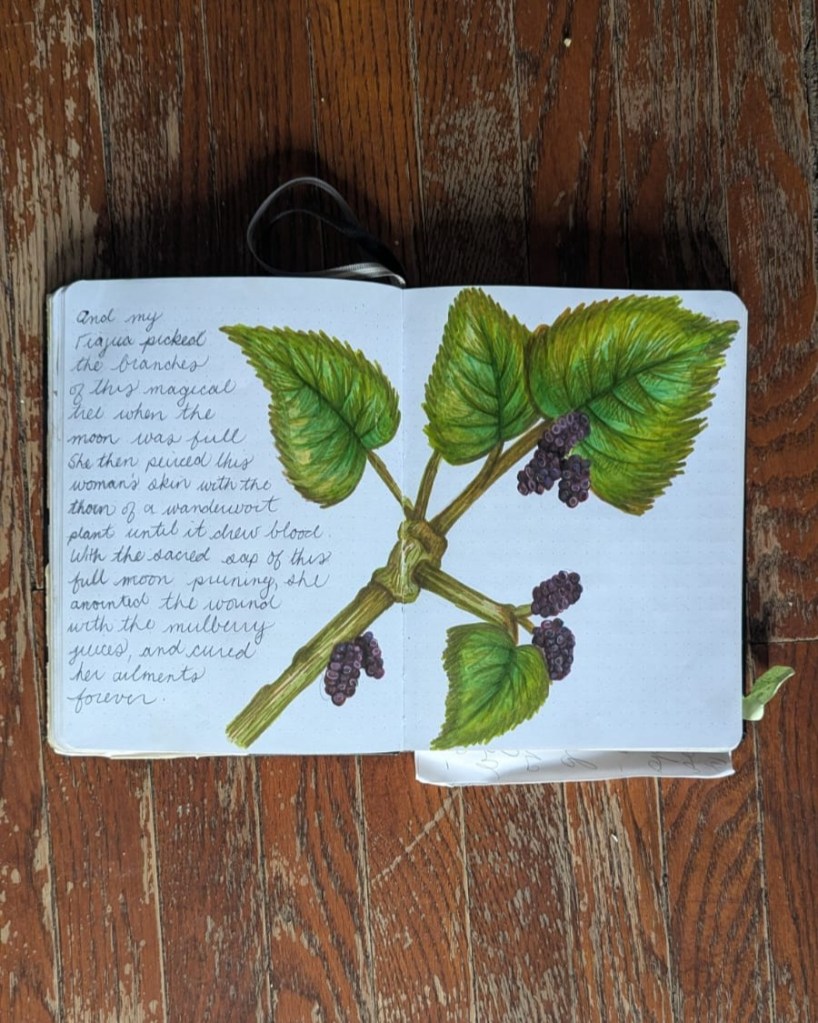 And my
Tiajua picked
the branches
of this magical
tree when the
moon was full
She then peirced this
woman's skin with the
thorn of a wanderwort
plant until it drew blood.
With the sacred sap of this
full moon pruning, she
anointed the wound
with the mulberry
juices, and cured
her ailments
forever.